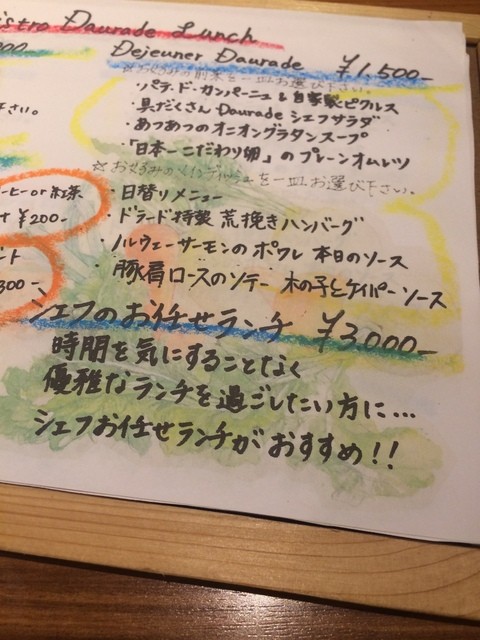 istro Daurade Lunch
000
Dejeuner Daurade ¥1,500-
☆お好みの前菜を一皿お選び下さい。
・パテ・ド・カンパーニュ & 自家製ピクルス
・具だくさん Daurade シェフサラダ
さい。
・あつあつのオニオングラタンスープ
・「日本一こだわり卵」のプレーンオムレツ
☆お好みのメインディッシュを一皿お選び下さい。
ーヒー or 紅茶
・日替りメニュー
¥200-
・ドラード特製 荒挽きハンバーグ
・ノルウェーサーモンのポワレ 本日のソース
ント
300-
・豚肩ロースのソテー 木の子とケイパーソース
シェフのお任せランチ ¥3,000-
時間を気にすることなく
優雅なランチを過ごしたい方に...
シェフお任せランチがおすすめ!!